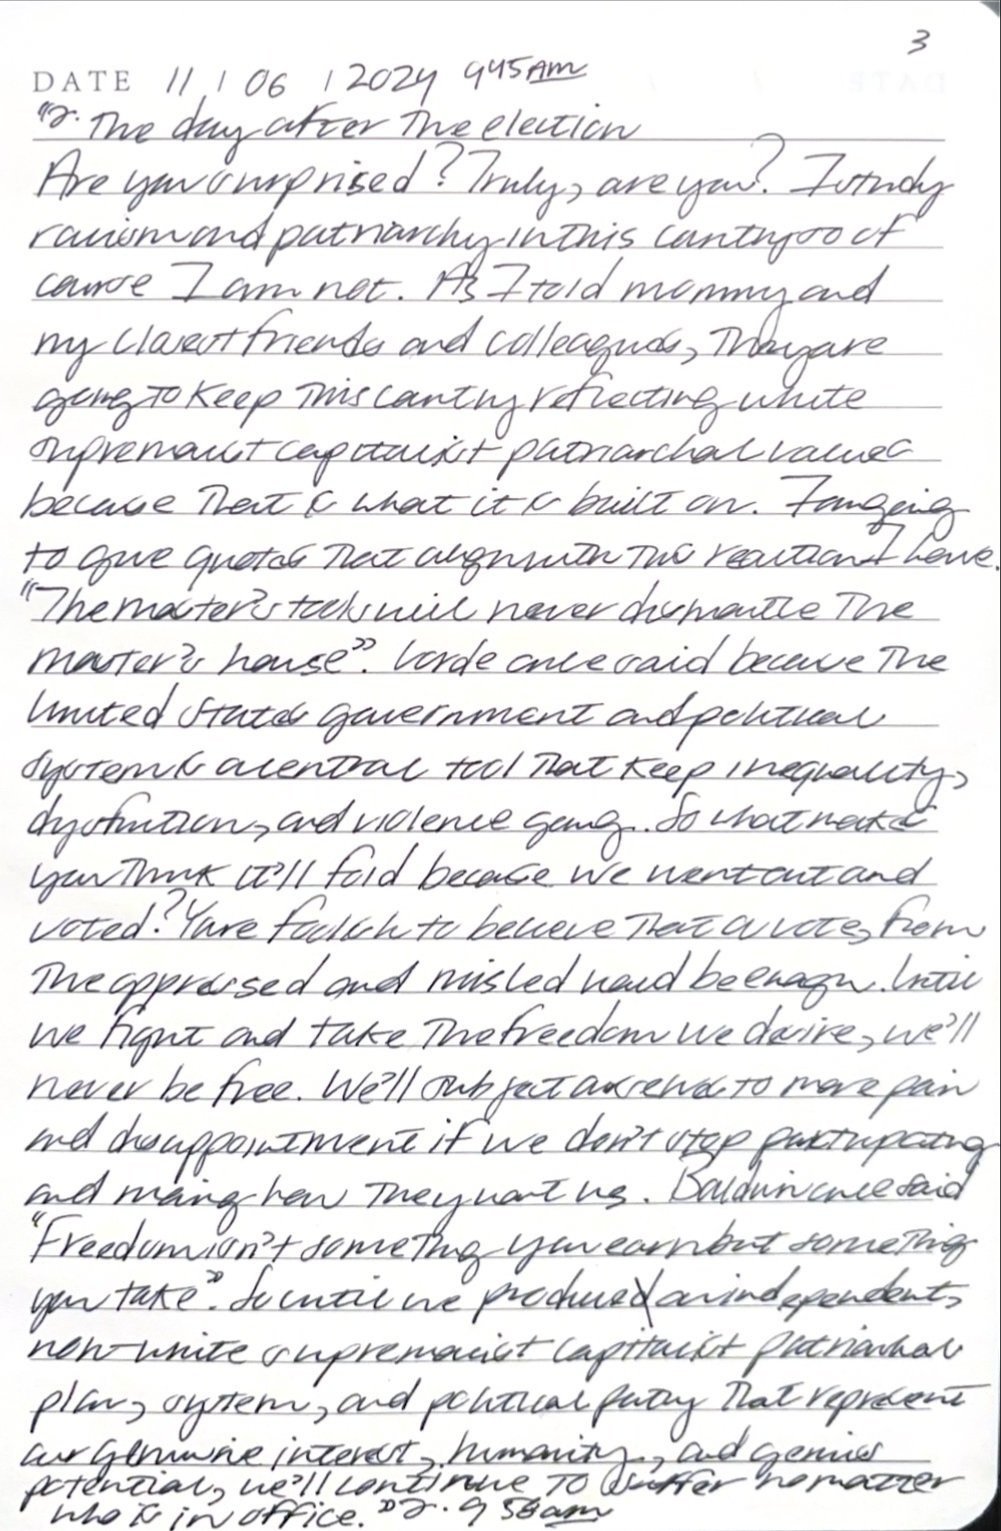 3
DATE 11 / 06 / 2024 945AM
"2. The day after the election
Are you surprised? Truly, are you? I study
racism and patriarchy in this country so of
course I am not. As I told mommy and
my closest friends and colleagues, They are
going to keep this country reflecting white
supremacist capitalist patriarchal values
because that is what it is built on. I am going
to give quotes that align with the reaction I have.
"The master's tools will never dismantle the
master's house". Lorde once said because the
United States government and political
system is a central tool that keep inequality,
dysfunction, and violence going. So what makes
you think it'll fold because we went out and
voted? You're foolish to believe that a vote, from
the oppressed and misled would be enough. Until
we fight and take the freedom we desire, we'll
never be free. We'll subject ourselves to more pain
and disappointment if we don't stop participating
and moving how they want us. Baldwin once said
"Freedom isn't something you earn but something
you take". So until we produce an independent,
non-white supremacist capitalist patriarchal
plan, system, and political party that represent
our genuine interest, humanity, and genius
potential, we'll continue to suffer no matter
who is in office." 2. 958am